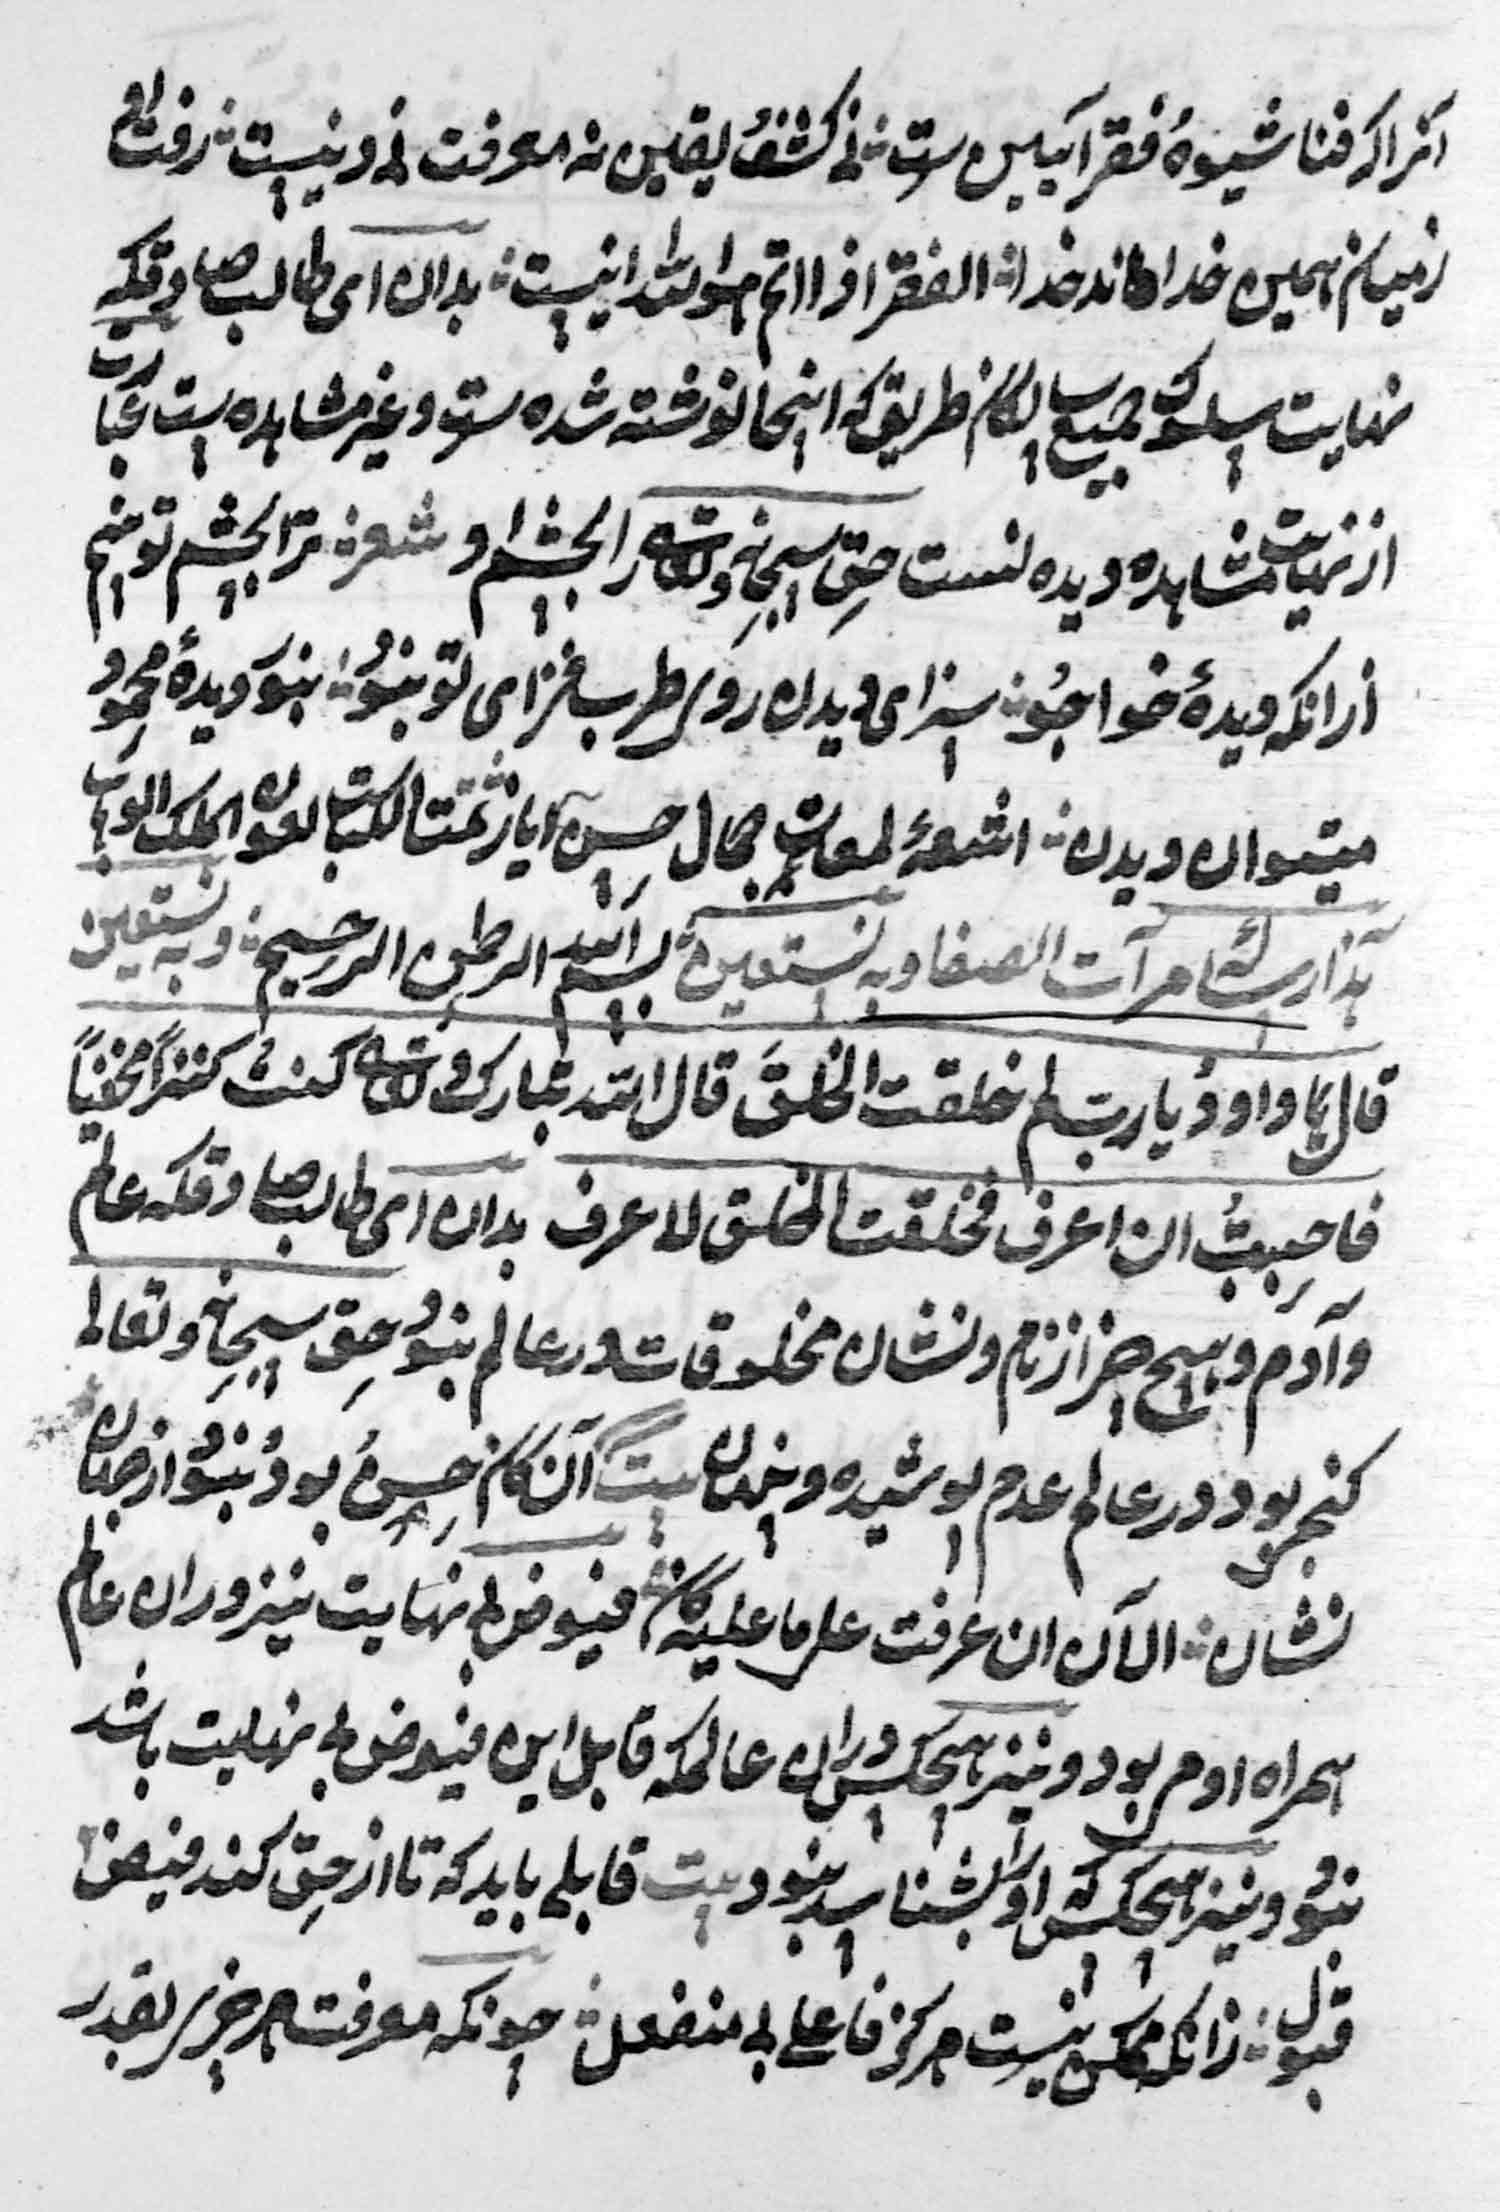 آنرا که فنا شیوهٔ فقر آیین ست نی کشف یقین نه معرفت نی دینیست رفت او
زمیان همین خدا ماند خدا الفقر اذا اتم هو الله اینیست بدان ای طالب صادق که
نهایت سلوک جمیع سالکان طریق که اینجا نوشته شده ست و غیر مشاهده ست عبارت
از نهایت مشاهده دیدنست حق سبحانه و تعالی را بچشم او شعر ترا بچشم تو بینم
ازانکه دیدهٔ خواجو سزای دیدن روی طرب فزای تو نبود بنور دیدهٔ محمود
میتوان دیدن اشعهٔ لمعات جمال حسن ایاز تمت الکتاب بعون الملک الوهاب
هذا رساله مرآت الصفا وبه نستعین بسم الله الرحمن الرحیم وبه نستعین
قال یا داوود یا رب لم خلقت الخلق قال الله تبارک و تعالی کنت کنزاً مخفیاً
فاحببت ان اعرف فخلقت الخلق لاعرف بدان ای طالب صادق که عالم
و آدم و هیچ چیز از نام و نشان مخلوقات در عالم نبود حق سبحانه و تعالی
کنجی بود در عالم عدم پوشیده و پنهان بیت آن کان حسن بود نبود از جهان
نشان الآن ان عرفت علی ما علیه کان فیوض بی نهایت نیز دران عالم
همراه او می بود و نیز هیچکس دران عالم که قابل این فیوض بی نهایت باشد
نبود و نیز هیچکس او را بشناسد نبود بیت قابلی باید که تا از حق کند فیض
قبول زانکه ممکن نیست هرگز فاعلی بی منفعل چونکه معرفت هر چیزی بقدر